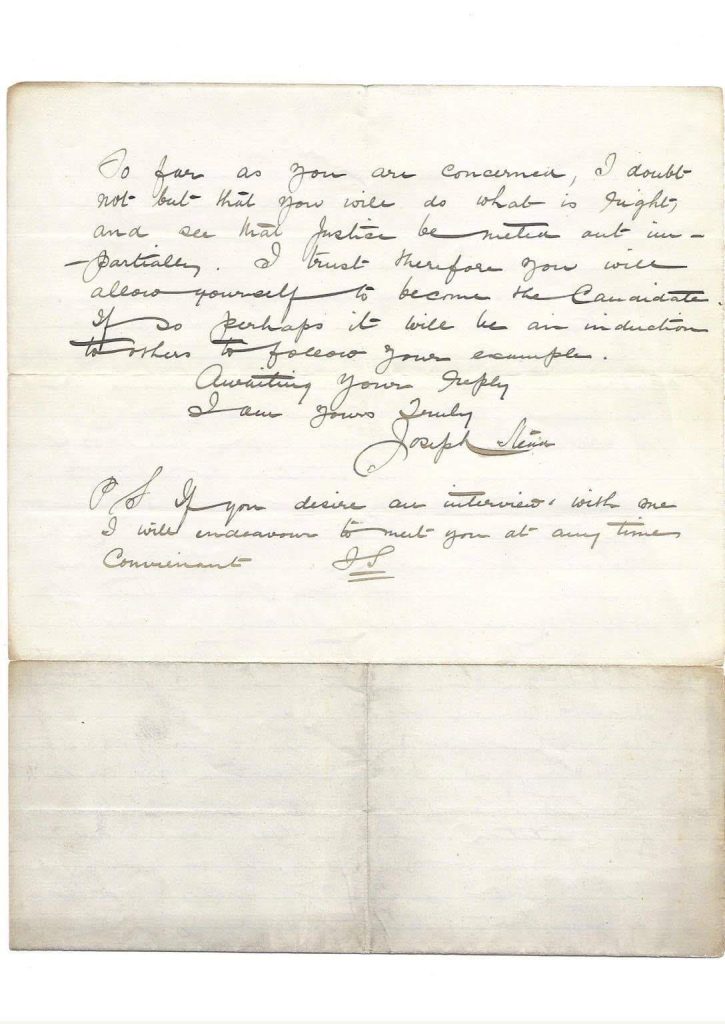 So far as you are concerned, I doubt
not but that you will do what is right,
and see that Justice be meted out im-
-partially. I trust therefore you will
allow yourself to become the Candidate.
If so perhaps it will be an induction
to others to follow your example.
Awaiting your reply
I am yours Truly
Joseph
P S If you desire an interview with me
I will endeavour to meet you at any time
Convienant JS